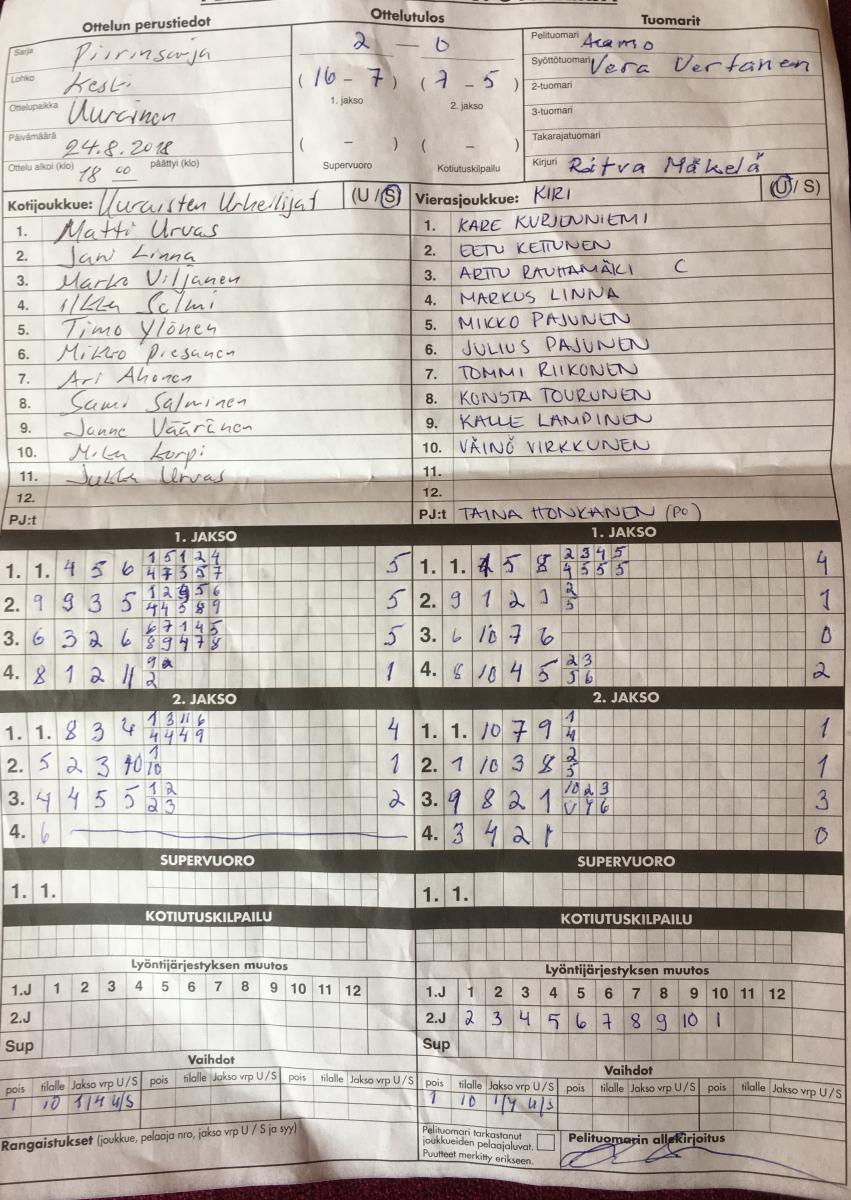 Ottelun perustiedot
Ottelutulos
Tuomarit
Sarja Piirinsarja
2 – 0
Pelituomari
Lohko Keski
(16 – 7) (7 – 5)
Syöttötuomari Vera Vertanen
1. jakso 2. jakso
2-tuomari
Ottelupaikka Uurainen
3-tuomari
Päivämäärä 24.8.2018
( – ) ( – )
Takarajatuomari
Ottelu alkoi (klo) 18 00 päättyi (klo)
Supervuoro Kotiutuskilpailu
Kirjuri Ritva Mäkelä
Kotijoukkue: Uuraisten Urheilijat (U / S)
1. Matti Urvas
2. Jani Linna
3. Marko Viljanen
4. Ilkka Salmi
5. Timo Ylönen
6. Mikko Piesanen
7. Ari Ahonen
8. Sami Salminen
9. Janne Vääränen
10. Mika Korpi
11. Jukka Urvas
12.
PJ:t
Vierasjoukkue: KIRI (U / S)
1. KARE KURJENNIEMI
2. EETU KETTUNEN
3. ARTTU RAUHAMÄKI C
4. MARKUS LINNA
5. MIKKO PAJUNEN
6. JULIUS PAJUNEN
7. TOMMI RIIKONEN
8. KONSTA TOURUNEN
9. KALLE LAMPINEN
10. VÄINÖ VIRKKUNEN
11.
12.
PJ:t TAINA HONKANEN (PO)
1. JAKSO
1. 1. 4 5 6 1 5 1 2 4 5
4 7 5 5 7
2. 9 9 3 5 5
3. 6 3 2 6 6 7 1 4 5 5
8 9 4 7 8
4. 8 1 2 11 1
2
1. JAKSO
1. 1. 5 8 2 3 4 5 4
4 5 5 5
2. 9 1 2 3 2 1
5
3. 6 10 7 6 0
4. 8 10 4 5 2 3 2
5 6
2. JAKSO
1. 1. 8 3 4 1 3 11 6 4
4 4 4 9
2. 5 2 3 10 1 1
10
3. 4 4 5 5 1 2 2
2 3
4. 6
2. JAKSO
1. 1. 10 7 9 1 1
4
2. 1 10 3 8 2 1
5
3. 9 8 2 1 10 2 3 3
4. 3 4 2 1 0
SUPERVUORO
1. 1.
SUPERVUORO
1. 1.
KOTIUTUSKILPAILU
KOTIUTUSKILPAILU
Lyöntijärjestyksen muutos
1.J 1 2 3 4 5 6 7 8 9 10 11 12
2.J
Sup
Lyöntijärjestyksen muutos
1.J 1 2 3 4 5 6 7 8 9 10 11 12
2.J 2 3 4 5 6 7 8 9 10 1
Sup
Vaihdot
pois tilalle Jakso vrp U / S pois tilalle Jakso vrp U / S pois tilalle Jakso vrp U / S
1 10 1/4 U/S
Vaihdot
pois tilalle Jakso vrp U / S pois tilalle Jakso vrp U / S pois tilalle Jakso vrp U / S
1 10 1/4 U/S
Rangaistukset (joukkue, pelaaja nro, jakso vrp U / S ja syy)
Pelituomari tarkastanut
joukkueiden pelaajaluvat.
Puutteet merkitty erikseen.
Pelituomarin allekirjoitus